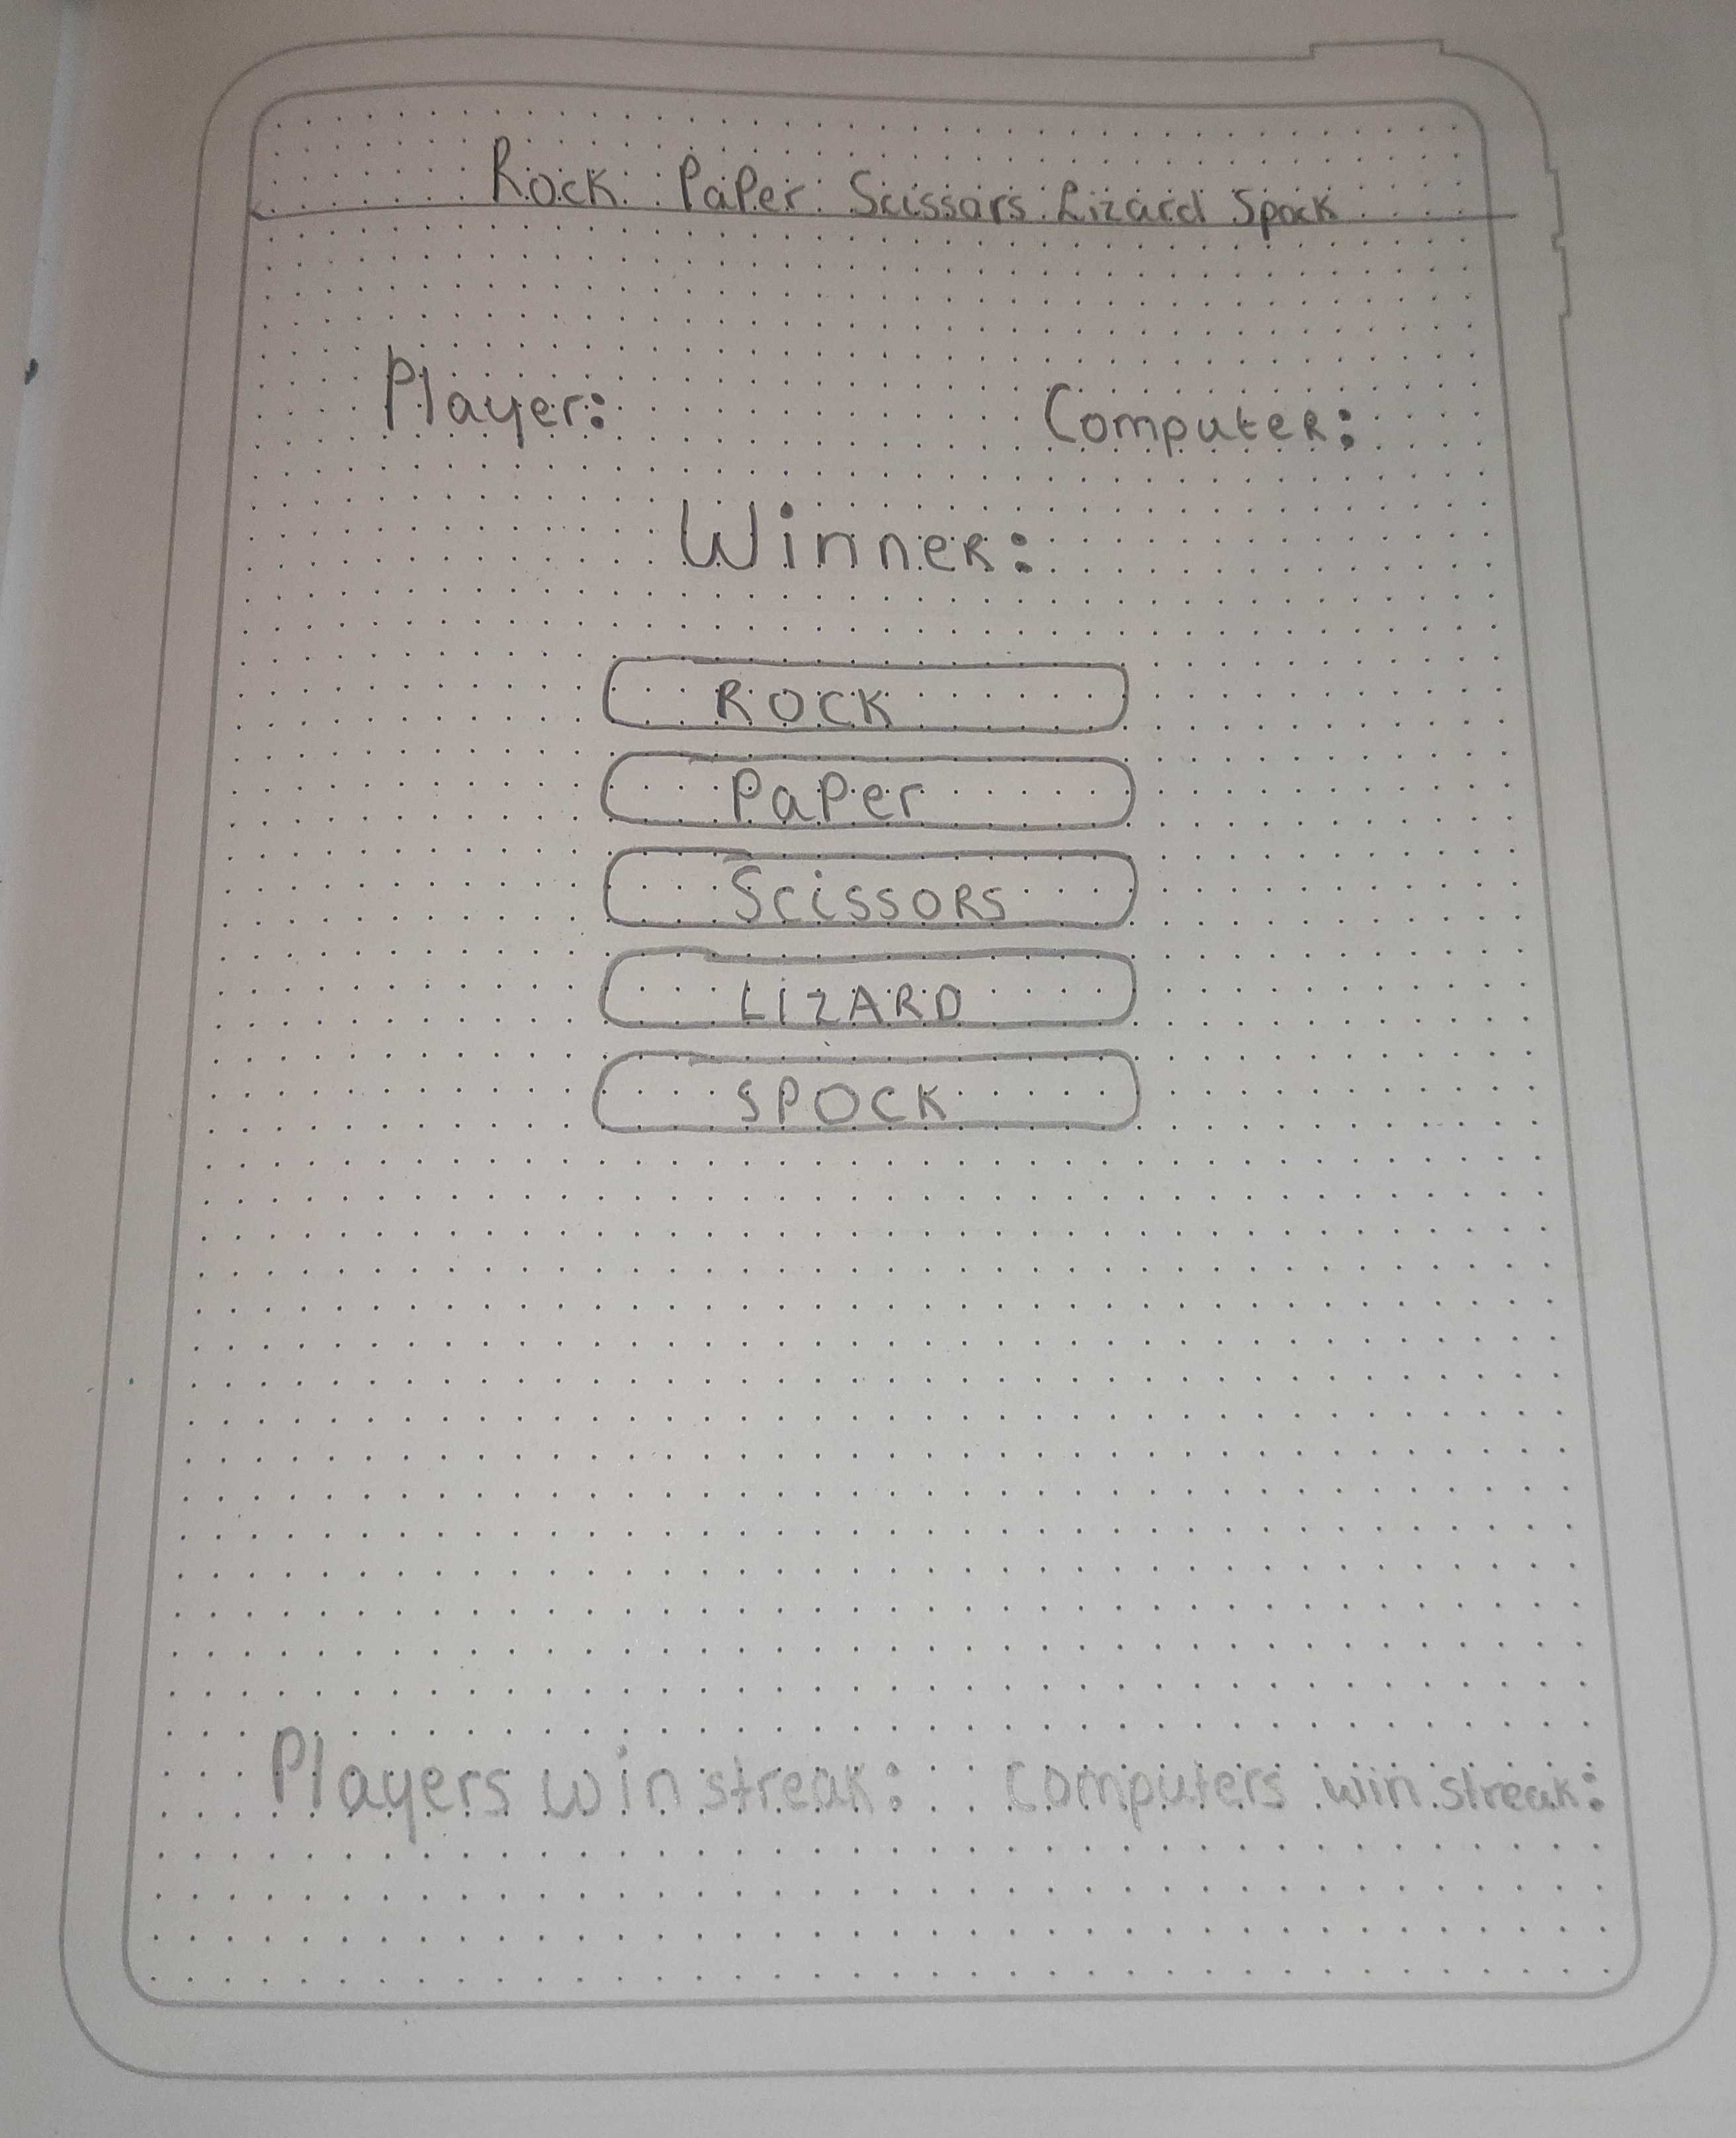 Rock Paper Scissors Lizard Spock
Player: Computer:
Winner:
ROCK
Paper
Scissors
LIZARD
SPOCK
Players win streak: Computers win streak: